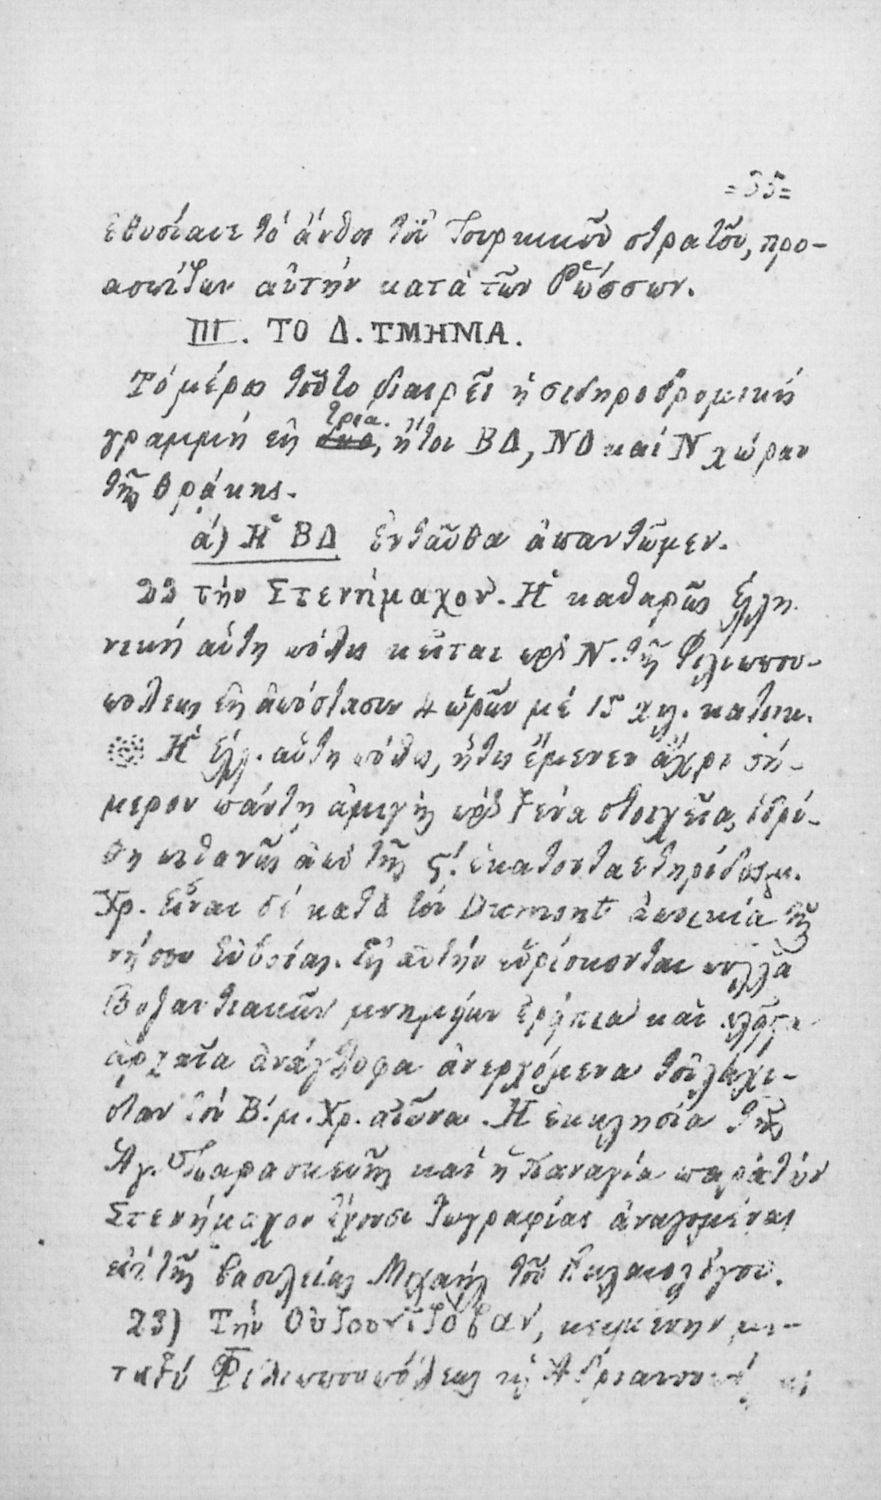 =35=
ἐθυσίασε τὸ ἄνθος τοῦ Τουρκικοῦ στρατοῦ, προ-
ασπίζων αὐτὴν κατὰ τῶν Ῥώσσων.
III. ΤΟ Δ. ΤΜΗΜΑ.
Τὸ μέρος τοῦτο διαιρεῖ ἡ σιδηροδρομικὴ
γραμμὴ εἰς τρία, ἤτοι ΒΔ, ΝΔ καὶ Ν χώραν
τῆς Θράκης.
ά) Ἡ ΒΔ ἐνταῦθα ἀπαντῶμεν.
22 τὴν Στενήμαχον. Ἡ καθαρῶς ἑλλη
νικὴ αὕτη πόλις κεῖται πρὸς Ν. τῆς Φιλιππου-
πόλεως εἰς ἀπόστασιν 4 ὡρῶν μὲ 15 χιλ. κατοικ.
Ἡ ἑλλ. αὕτη πόλις, ἥτις ἔμενεν ἄχρι σή-
μερον πάντῃ ἀμιγὴς πρὸς ξένα στοιχεῖα, ἱδρύ-
θη πιθανῶς ἀπὸ τῆς ς΄. ἑκατονταετηρίδος μ.
Χρ. Εἶναι δὲ κατὰ τὸν Dumont ἀποικία τῆς
νήσου Εὐβοίας. Εἰς αὐτὴν εὑρίσκονται πολλὰ
Βυζαντιακῶν μνημείων ἐρείπια καὶ
ἀρχαῖα ἀνάγλυφα ἀνερχόμενα τοὐλάχι-
στον τὸν Β΄. μ. Χρ. αἰῶνα. Ἡ ἐκκλησία τῆς
Ἁγ. Παρασκευῆς καὶ ἡ Παναγία παρὰ τὴν
Στενήμαχον ἔχουσι ζωγραφίας ἀναγομένας
ἐπὶ τῆς βασιλείας Μιχαὴλ τοῦ Παλαιολόγου.
23) Τὴν Οὐζουντζόβαν, κειμένην με-
ταξὺ Φιλιππουπόλεως καὶ